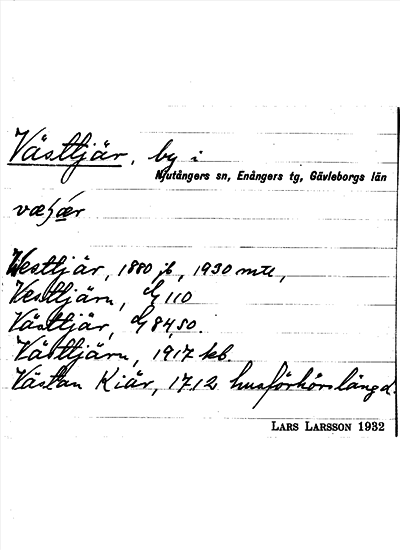 Västtjär, by i
Njutångers sn, Enångers tg, Gävleborgs län
Westtjär, 1880 jb, 1930 mtl,
Vesttjärn, G 110
Västtjär, G 84,50.
Västtjärn, 1917 kb.
Västan Kiär, 1712 husförhörslängd.
LARS LARSSON 1932